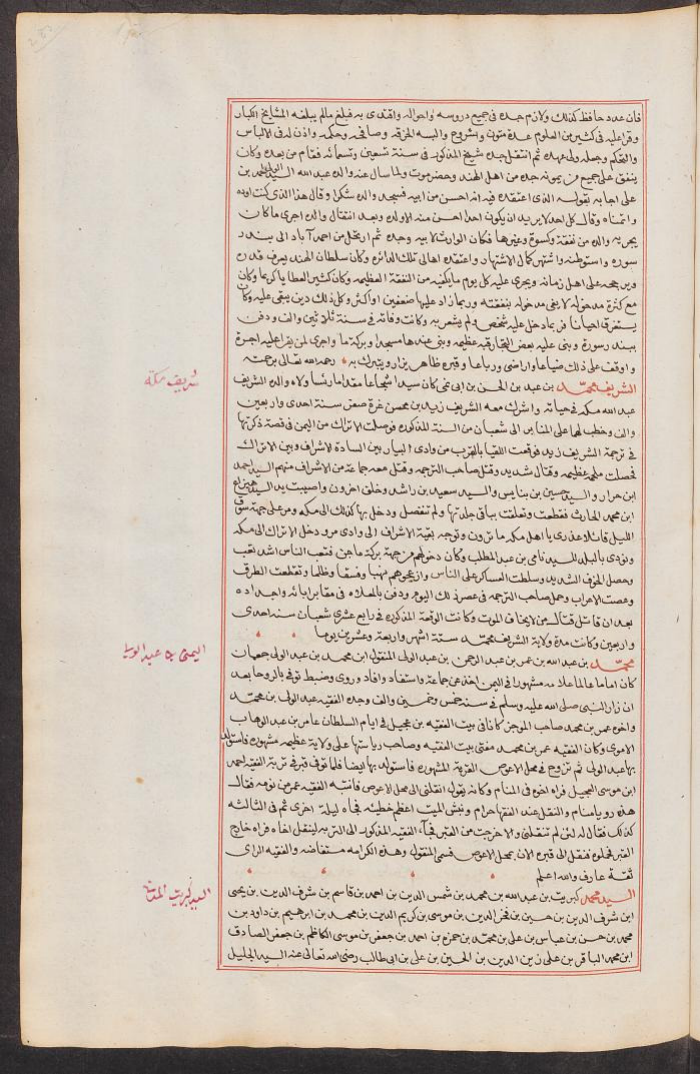 فان عدد حافظ كذلك ولازم جده فى جميع دروسه واحواله واقتدى به فبلغ مالم يبلغه المشايخ الكبار
وقرا عليه فى كثير من العلوم عدة متون وشروح والبسه الخرقه وصافحه وحكمه واذن له فى الالباس
والتحكم وجعله ولى عهده ثم انتقل جده شيخ المذكور فى سنة تسعين وتسعمائه فقام من بعده وكان
ينفق على جميع من يمونه جده من اهل الهند وحضرموت ولما سال عنه والده عبد الله السيد بن
على اجابه بقوله الذى اعتقده فيه انه احسن من ابيه فسجد والده شكرا وقال هذا الذى كنت اوده
واتمناه وقال كل احد لا يريد ان يكون احدا احسن منه الا ولده وبعد انتقال والده اجرى ما كان
يجريه والده من نفقة وكسوة وغيرها فكان الوارث لابيه وجده ثم ارتحل من احمد آباد الى بندر
سوره واستوطنه واشتهر كمال الاشتهار واعتقده اهالى تلك الدائرة وكان سلطان الهند يعرف قدره
ويرجحه على اهل زمانه ويجرى عليه كل يوم ما يكفيه من النفقة العظيمه وكان كثير العطايا كريما وكان
مع كثرة مدخوله لا يفى مدخوله بنفقته وربما زاد عليها ضعفين او اكثر وكل ذلك دين يبقى عليه وكان
يستغرق احيانا فربما دخل عليه شخص ولم يشعر به وكانت وفاته فى سنة ثلاثين والف ودفن
ببندر سورة وبنى عليه بعض التجار قبه عظيمه وبنى عندها مسجدا وبركة ما واجرى لمن يقرا عليه اجرة
واوقف على ذلك ضياعا واراضى ورباعا وقبره ظاهر يزار ويتبرك به رحمه الله تعالى برحمته
الشريف محمد بن عبد الله بن الحسن بن ابى نمى كان سيدا شجاعا مقداما رئيسا ولاه والده الشريف
عبد الله مكه فى حياته واشرك معه الشريف زيد بن محسن غرة صفر سنة احدى واربعين
والف وخطب لهما على المنابر الى شعبان من السنة المذكوره فوصلت الاتراك من اليمن فى قصة ذكرتها
فى ترجمة الشريف زيد فوقعت اللقيا بالقرب من وادى البيار بين السادة الاشراف وبين الاتراك
فحصلت ملحمه عظيمه وقتال شديد وقتل صاحب الترجمه وقتل معه جماعة من الاشراف منهم السيد احمد
ابن حراز والسيد حسين بن والسيد سعيد بن راشد وخلق اخرون واصيبت يد السيد هزاع
ابن محمد الحارث فقطعت وتعلقت بباقى جلدتها ولم تنفصل ودخل بها كذلك الى مكه ومر على جهة سوق
الليل قائلا عذرى يا اهل مكه ما ترون وتوجه بقية الاشراف الى وادى مر ودخل الاتراك الى مكه
ونودى بالبلد للسيد نامى بن عبد المطلب وكان دخولهم من جهة بركة ماجن فتعب الناس اشد تعب
وحصل الخوف الشديد وسلطت العساكر على الناس وازعجوهم نهبا وفسقا وظلما وتقطعت الطرق
وعصت الاعراب وحمل صاحب الترجمه فى عصر ذلك اليوم ودفن بالمعلاه فى مقابر ابائه واجداده
بعد ان قاتل قتال من لا يخاف الموت وكانت الوقعة المذكوره فى رابع عشرى شعبان سنه احدى
واربعين وكانت مدة ولاية الشريف محمد ستة اشهر واربعة وعشرين يوما
محمد بن عبد الله بن عمر بن عبد الرحمن بن عبد الولى المنقول ابن محمد بن عبد الولى جعمان
كان اماما عالما علامه مشهورا فى اليمن اخذ عن جماعة واستفاد وافاد وروى وضبط توفى بالروحا بعد
ان زار النبى صلى الله عليه وسلم فى سنة خمس وخمسين والف وجده الفقيه عبد الولى بن محمد
واخوه عمر بن محمد صاحب الموجز كانا فى بيت الفقيه بن عجيل فى ايام السلطان عامر بن عبد الوهاب
الاموى وكان الفقيه عمر بن محمد مفتى بيت الفقيه وصاحب رياستها على ولاية عظيمه مشهوره فاستولد
بها عبد الولى ثم تزوج فى محل الاعوص القرية المشهوره فاستولد بها ايضا فلما توفى قبر فى تربة الفقيه احمد
ابن موسى العجيل فراه اخوه فى المنام وكانه يقول انقلنى الى محل الاعوص فانتبه الفقيه عمر من نومه فقال
هذه رؤيا منام والنقل عند الفقها حرام ونبش الميت اعظم خطيئه فجاه ليلة اخرى ثم فى الثالثه
كذلك فقال له لئن لم تنقلنى والا خرجت من القبر فجآء الفقيه المذكور الى التربه لينقل اخاه فراه خارج
القبر فحملوه فنقل الى قبره الان بمحل الاعوص فسمى المنقول وهذه الكرامه مستفاضه والفقيه الراى
ثقة عارف والله اعلم
السيد محمد كبريت بن عبد الله بن محمد بن شمس الدين بن احمد بن قاسم بن شرف الدين بن يحيى
ابن شرف الدين بن حسين بن فخر الدين بن موسى بن كريم الدين بن محمد بن ابرهيم بن داود بن
محمد بن حسن بن عباس بن على بن محمد بن حمزه بن احمد بن جعفر بن موسى الكاظم بن جعفر الصادق
ابن محمد الباقر بن على زين الدين بن الحسين بن على بن ابى طالب رضى الله تعالى عنه السيد الجليل
شريف مكه